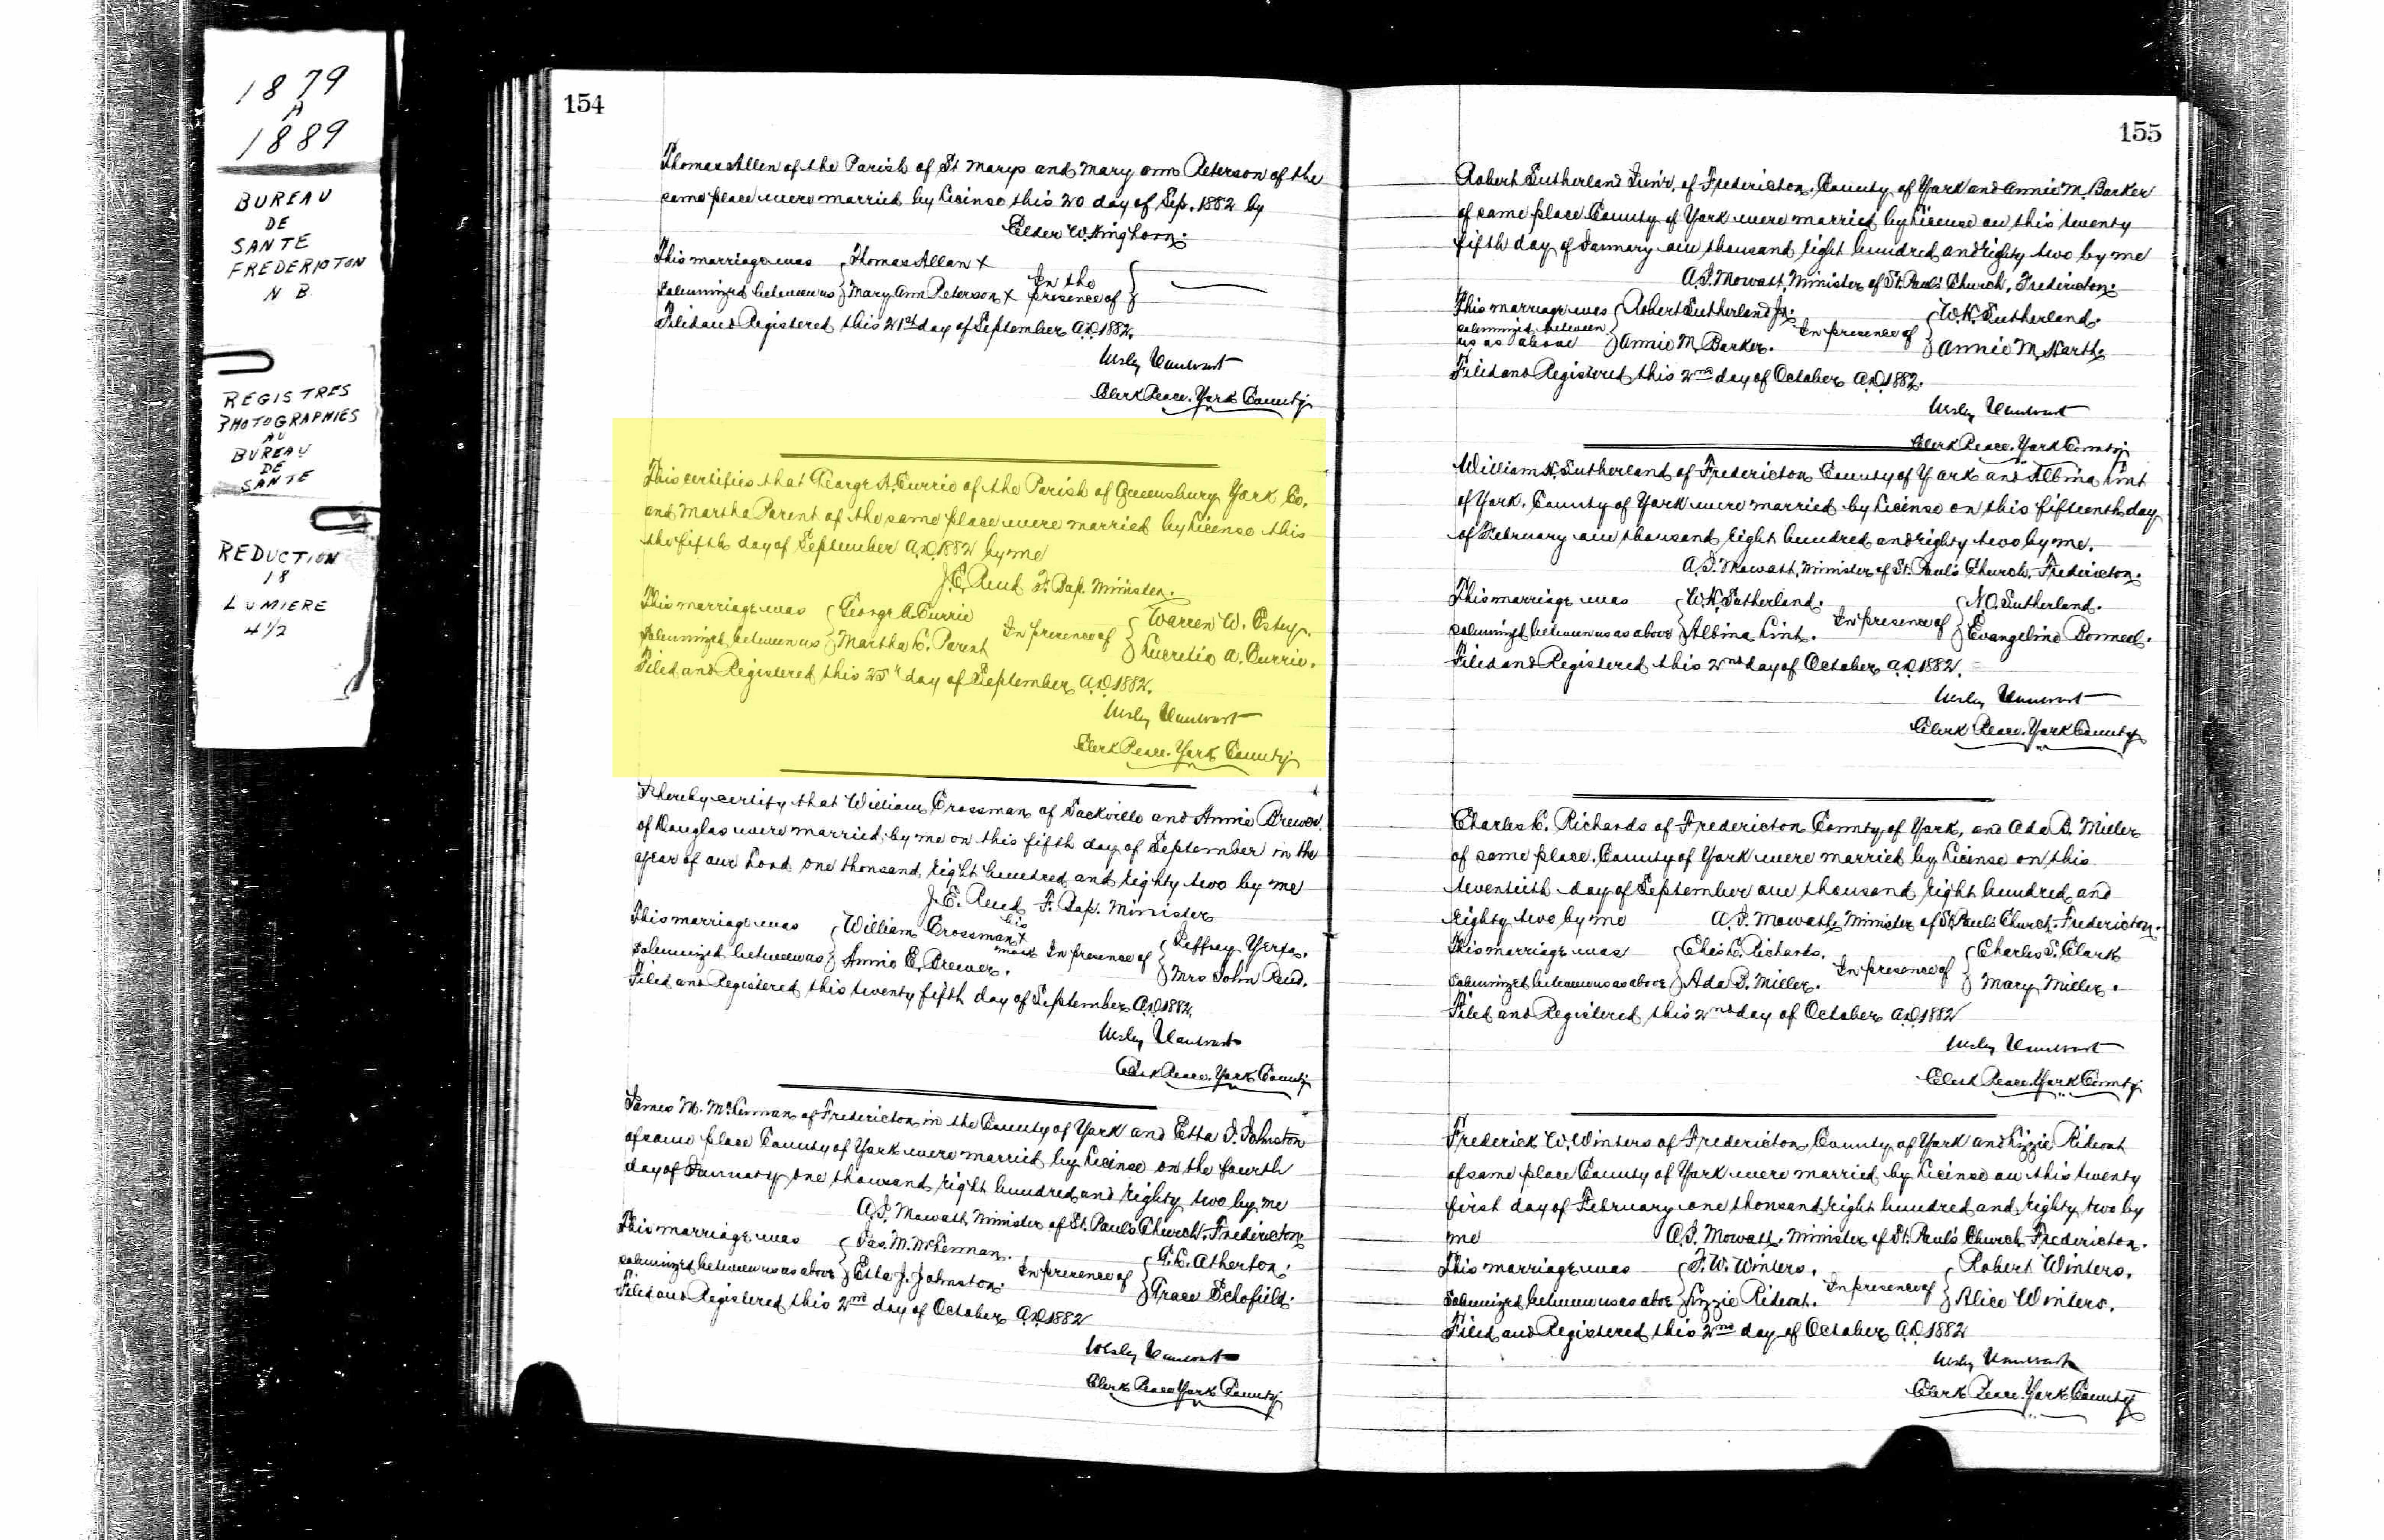 1879
A
1889
BUREAU
DE
SANTE
FREDERICTON
N B
REGISTRES
PHOTOGRAPHIES
AU
BUREAU
DE
SANTE
REDUCTION
18
LUMIERE
4 1/2
154
Thomas Allen of the Parish of St Marys and Mary Ann Peterson of the
same place were married by License this 20 day of Sep. 1882 by
Elder W. Kinghorn.
This marriage was { Thomas Allan X In the {
solemnized between us } Mary Ann Peterson X presence of }
Filed and Registered this 21st day of September A.D. 1882.
Wesley Vanwart
Clerk Peace. York County
This certifies that George A. Currie of the Parish of Queensbury York Co.
and Martha Parent of the same place were married by License this
the fifth day of September A.D. 1882 by me
J. E. Reud F. Bap. Minister.
This marriage was { George A. Currie In presence of { Warren W. Estey.
solemnized between us } Martha E. Parent } Lucretia A. Currie.
Filed and Registered this 25th day of September A.D. 1882.
Wesley Vanwart
Clerk Peace. York County
I hereby certify that William Crossman of Sackville and Annie Brewer
of Douglas were married by me on this fifth day of September in the
year of our Lord one thousand eight hundred and eighty two by me
J. E. Reud F. Bap. Minister
This marriage was { William his X mark Crossman In presence of { Jeffrey Yerxa.
solemnized between us } Annie E. Brewer. } Mrs John Reud.
Filed and Registered this twenty fifth day of September A.D. 1882.
Wesley Vanwart
Clerk Peace. York County
James M. McKennan of Fredericton in the County of York and Etta J. Johnston
of same place County of York were married by License on the fourth
day of January one thousand eight hundred and eighty two by me
A. J. Mowatt, Minister of St. Paul's Church, Fredericton.
This marriage was { Jas. M. McKennan. In presence of { Atherton.
solemnized between us as above } Etta J. Johnston. } Grace Schofield.
Filed and Registered this 2nd day of October A.D. 1882
Wesley Vanwart
Clerk Peace York County
155
Robert Sutherland Jun'r. of Fredericton, County of York and Annie M. Barker
of same place County of York were married by License on this twenty
fifth day of January one thousand eight hundred and eighty two by me
A. J. Mowatt, Minister of St. Paul's Church, Fredericton.
This marriage was { Robert Sutherland Jr. In presence of { W. K. Sutherland.
solemnized between us as above } Annie M. Barker. } Annie M.
Filed and Registered this 2nd day of October A.D. 1882.
Wesley Vanwart
Clerk Peace. York County
William K. Sutherland of Fredericton County of York and Albina Lint
of York. County of York were married by License on this fifteenth day
of February one thousand eight hundred and eighty two by me.
A. J. Mowatt, Minister of St. Paul's Church, Fredericton.
This marriage was { W. K. Sutherland. In presence of { Sutherland.
solemnized between us as above } Albina Lint. } Evangeline
Filed and Registered this 2nd day of October A.D. 1882.
Wesley Vanwart
Clerk Peace. York County
Charles E. Richards of Fredericton County of York, and Ada B. Miller
of same place, County of York were married by License on this
twentieth day of September one thousand eight hundred and
eighty two by me A. J. Mowatt, Minister of St. Paul's Church, Fredericton.
This marriage was { Chas E. Richards. In presence of { Charles S. Clark
solemnized between us as above } Ada B. Miller. } Mary Miller.
Filed and Registered this 2nd day of October A.D. 1882
Wesley Vanwart
Clerk Peace. York County
Frederick W. Winters of Fredericton County of York and Lizzie Rideout
of same place County of York were married by License on this twenty
first day of February one thousand eight hundred and eighty two by
me A. J. Mowatt, Minister of St. Paul's Church Fredericton.
This marriage was { F. W. Winters. In presence of { Robert Winters.
solemnized between us as above } Lizzie Rideout. } Alice Winters.
Filed and Registered this 2nd day of October A.D. 1882
Wesley Vanwart
Clerk Peace. York County